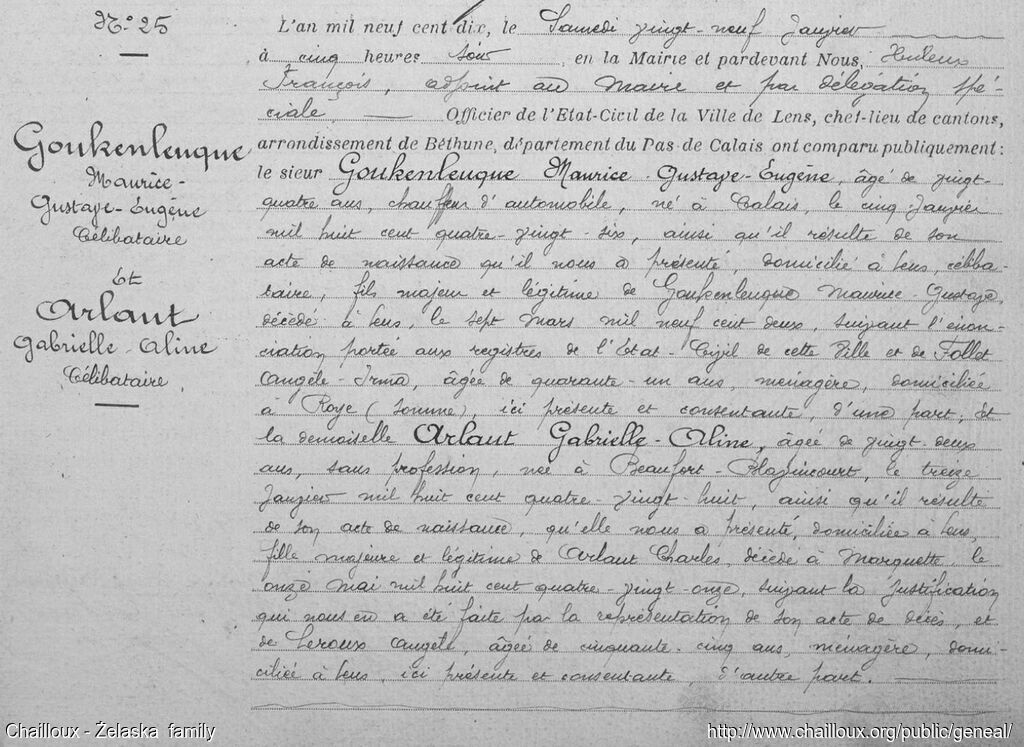 N.° 25
Goukenleuque
Maurice -
Gustave - Eugène
Célibataire
Et
Arlaut
Gabrielle - Aline
Célibataire
L'an mil neuf cent dix, le Samedi vingt-neuf Janvier
à cinq heures soir, en la Mairie et pardevant Nous,
François, adjoint au Maire et par délégation spé-
ciale, Officier de l'Etat-Civil de la Ville de Lens, chef-lieu de cantons,
arrondissement de Béthune, département du Pas-de-Calais ont comparu publiquement :
le sieur Goukenleuque Maurice - Gustave - Eugène, âgé de vingt-
quatre ans, chauffeur d'automobile, né à Calais, le cinq Janvier
mil huit cent quatre-vingt-six, ainsi qu'il résulte de son
acte de naissance qu'il nous a présenté, domicilié à Lens, céliba-
taire, fils majeur et légitime de Goukenleuque Maurice - Gustave,
décédé à Lens, le sept mars mil neuf cent deux, suivant l'énon-
ciation portée aux registres de l'Etat-Civil de cette Ville et de Follet
Angèle - Irma, âgée de quarante-un ans, ménagère, domiciliée
à Roye (Somme), ici présente et consentante, d'une part ; Et
la demoiselle Arlaut Gabrielle - Aline, âgée de vingt-deux
ans, sans profession, née à Beaufort-Blavincourt, le treize
Janvier mil huit cent quatre-vingt-huit, ainsi qu'il résulte
de son acte de naissance, qu'elle nous a présenté, domiciliée à Lens,
fille majeure et légitime de Arlaut Charles, décédé à Marquette, le
onze mai mil huit cent quatre-vingt-onze, suivant la justification
qui nous en a été faite par la représentation de son acte de décès, et
de Leroux Angèle, âgée de cinquante-cinq ans, ménagère, domi-
ciliée à Lens, ici présente et consentante, d'autre part.
Chailloux - Želaska family
http://www.chailloux.org/public/geneal/